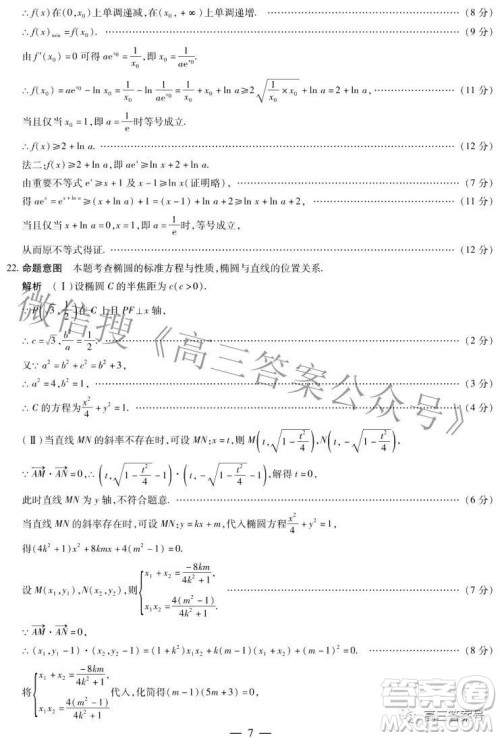 ∴ f(x)在(0,x₀)上单调递减,在(x₀,+∞)上单调递增. (8分)
∴ f(x)min=f(x₀). (9分)
由f′(x₀)=0可得ae^{x₀}=1/x₀,即x₀=1/(ae^{x₀}).
∴ f(x₀)=ae^{x₀}-ln x₀=1/x₀-ln 1/(ae^{x₀})=1/x₀+x₀+ln a≥2√(1/x₀×x₀)+ln a=2+ln a, (11分)
当且仅当x₀=1,即a=1/e时等号成立.
∴ f(x)≥2+ln a. (12分)
法二:f(x)≥2+ln a,即aeˣ≥ln x+2+ln a.
由重要不等式eˣ≥x+1及x-1≥ln x(证明略), (7分)
得aeˣ=e^{x+ln a}≥(x+ln a)+1=(x-1)+2+ln a≥ln x+2+ln a, (11分)
当且仅当x+ln a=0,x=1,即a=1/e时,等号成立,
从而原不等式得证. (12分)
22. 命题意图 本题考查椭圆的标准方程与性质,椭圆与直线的位置关系.
解析 (Ⅰ)设椭圆C的半焦距为c(c>0).
∵ P(√3,1/2)在C上且PF⊥x轴,
∴ c=√3,b²/a=1/2. (2分)
又∵ a²=b²+c²=b²+3,
∴ a²=4,b²=1, (3分)
∴ C的方程为x²/4+y²=1. (4分)
(Ⅱ)当直线MN的斜率不存在时,可设MN:x=t,则M(t,√(1-t²/4)),N(t,-√(1-t²/4)).
∵ AM·AN=0,∴(t,√(1-t²/4)-1)·(t,-√(1-t²/4)-1)=0,解得t=0,
此时直线MN为y轴,不符合题意. (6分)
当直线MN的斜率存在时,可设MN:y=kx+m,代入椭圆方程x²/4+y²=1,
得(4k²+1)x²+8kmx+4(m²-1)=0.
设M(x₁,y₁),N(x₂,y₂),则{x₁+x₂=-8km/(4k²+1), x₁x₂=4(m²-1)/(4k²+1). (7分)
∵ AM·AN=0,
∴(x₁,y₁-1)·(x₂,y₂-1)=(1+k²)x₁x₂+k(m-1)(x₁+x₂)+(m-1)²=0. (8分)
将{x₁+x₂=-8km/(4k²+1), x₁x₂=4(m²-1)/(4k²+1)代入,化简得(m-1)(5m+3)=0,
— 7 —
微信搜《高三答案公众号》
高三答案号
答案圈